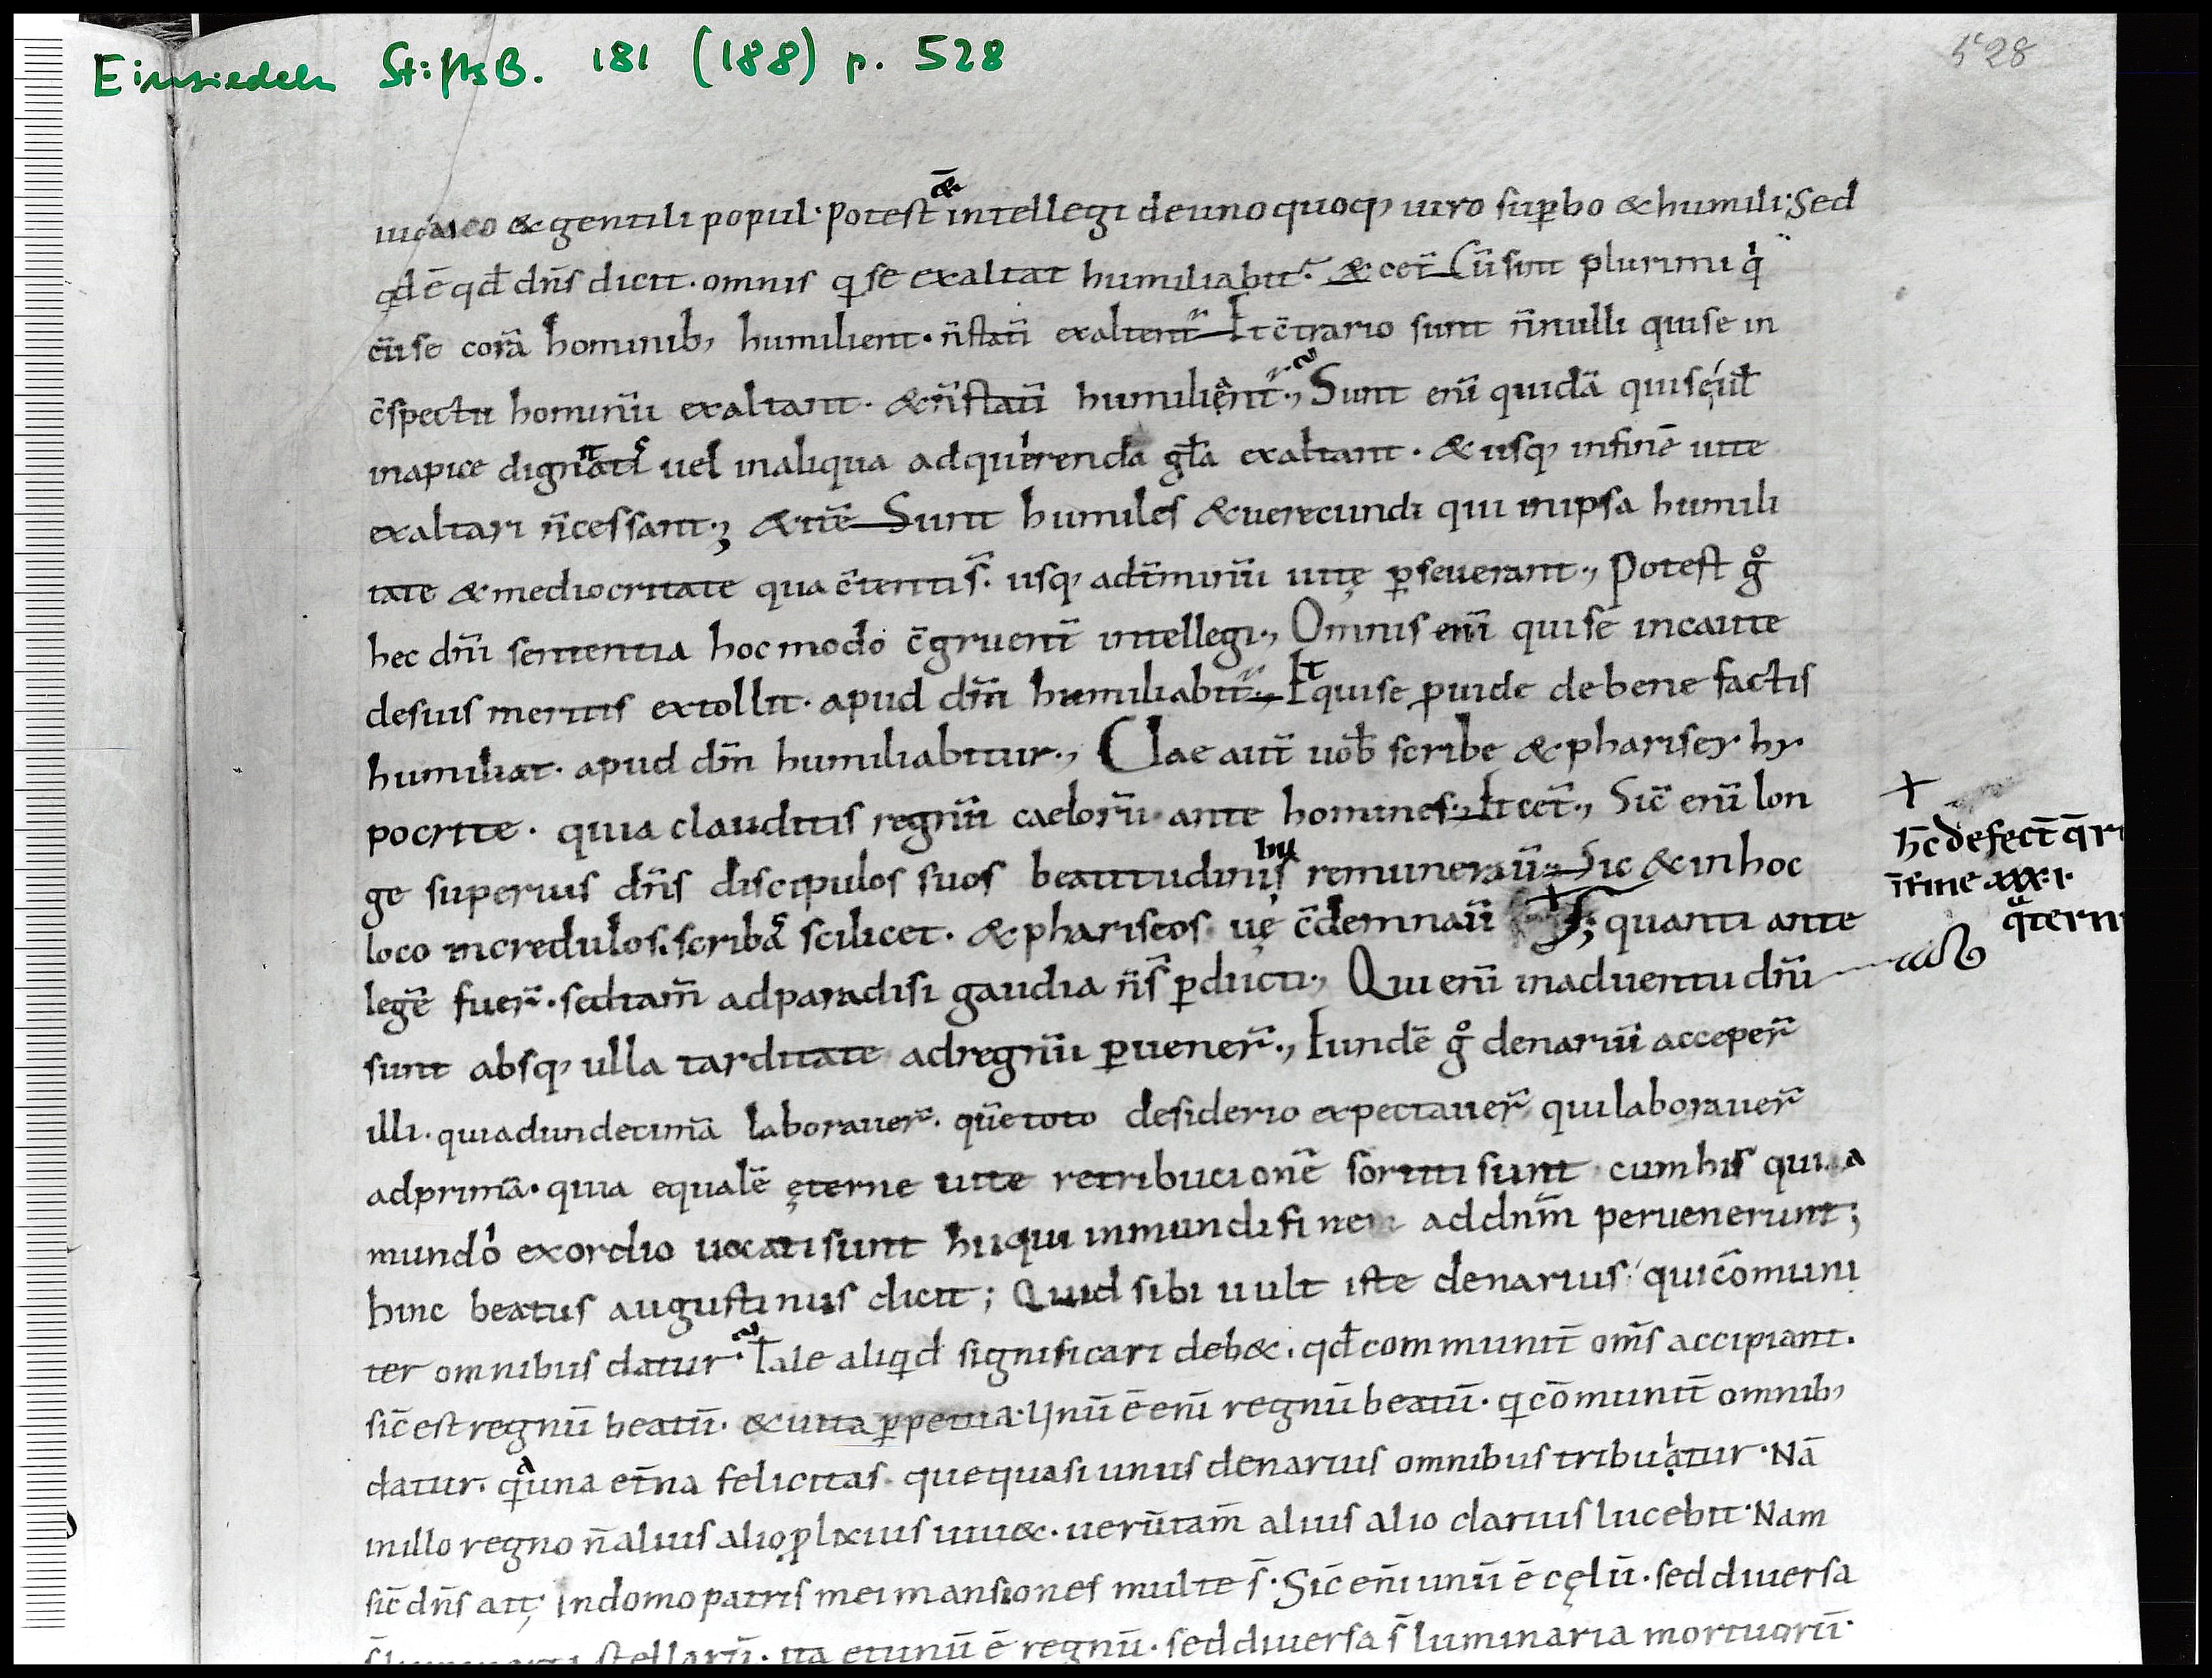 Einsiedeln StiftsB. 181 (188) p. 528
528
iudaeo & gentili popul· Potest &̄ intellegi deuno quoq; uiro sup̱bo & humili· Sed
qd ē qd̄ dn̄s dicit· omnis qi se exaltat humiliabit̃· & cet̃ Cū sint plurimi qi
cū se corā hominib; humilient· n̄ statī exaltent̃ Et c̄trario sunt n̄nulli qui se in
c̄spectu hominū exaltant· & n̄ statī humiliant̃·, Sunt enī quidā qui se ul̄
inapice dignitatis uel inaliqua adquirenda gl̄a exaltant· & usq; infinē uite
exaltari n̄cessant· & tē Sunt humiles & uerecundi qui inipsa humili
tate & mediocritate qua c̄tenti s̄· usq; adt̄minū uitę p̱seuerant·, Potest gͦ
hec dn̄i sententia hoc modo c̄gruent̄ intellegi·, Omnis enī qui se incaute
desuis meritis extollit· apud dm̄ humiliabit̃·, Et qui se p̱uide de bene factis
humiliat· apud dm̄ humiliabitur·, Uae aut̄ uob̄ scribe & pharisey hy
pocrite· quia clauditis regnū caelorū ante homines· Et cet̃·, Sic̄ enī lon
ge superius dn̄s discipulos suos beatitudinibus remunerauī Sic & inhoc
loco incredulos· scribas scilicet· & phariseos uę c̄demnauī quanti ante
legē fuer̃· s&iam̄ adparadisi gaudia n̄ s̄ p̱ducti·, Qui enī inaduentu dn̄i
sunt absq; ulla tarditate adregnū p̱uener̃·, Eundē gͦ denariū acceper̃
illi· qui adundecimā laborauer̃· quē toto desiderio expectauer̃ qui laborauer̃
adprimā· quia equalē ęterne uite retribucionē sortiti sunt cum his qui a
mundi exordio uocati sunt hii qui inmundi finem addnm̄ peruenerunt;
hinc beatus augustinus dicit; Quid sibi uult iste denarius· qui c̄omuni
ter omnibus datur· Tale aliqid significari deb&· qd̄ communit̄ om̄s accipiant·
sic̄ est regnū beatū· & uita p̱petua· Unū ē enī regnū beatū· qi cōmunit̄ omnib;
datur· qia una et̄na felicitas· que quasi unus denarius omnibus tribuitur· Nā
inillo regno n̄ alius alio p̱lixius uiu&· uerūtam̄ alius alio clarius lucebit· Nam
sic̄ dn̄s ait· Indomo patris mei mansiones multe s̄· Sic̄ enī unū ē cęlū· sed diuersa
stellarū· ita et unū ē regnū· sed diuersa s̄ luminaria mortuorū·
+
h̄c defect̄
īfine xxxi